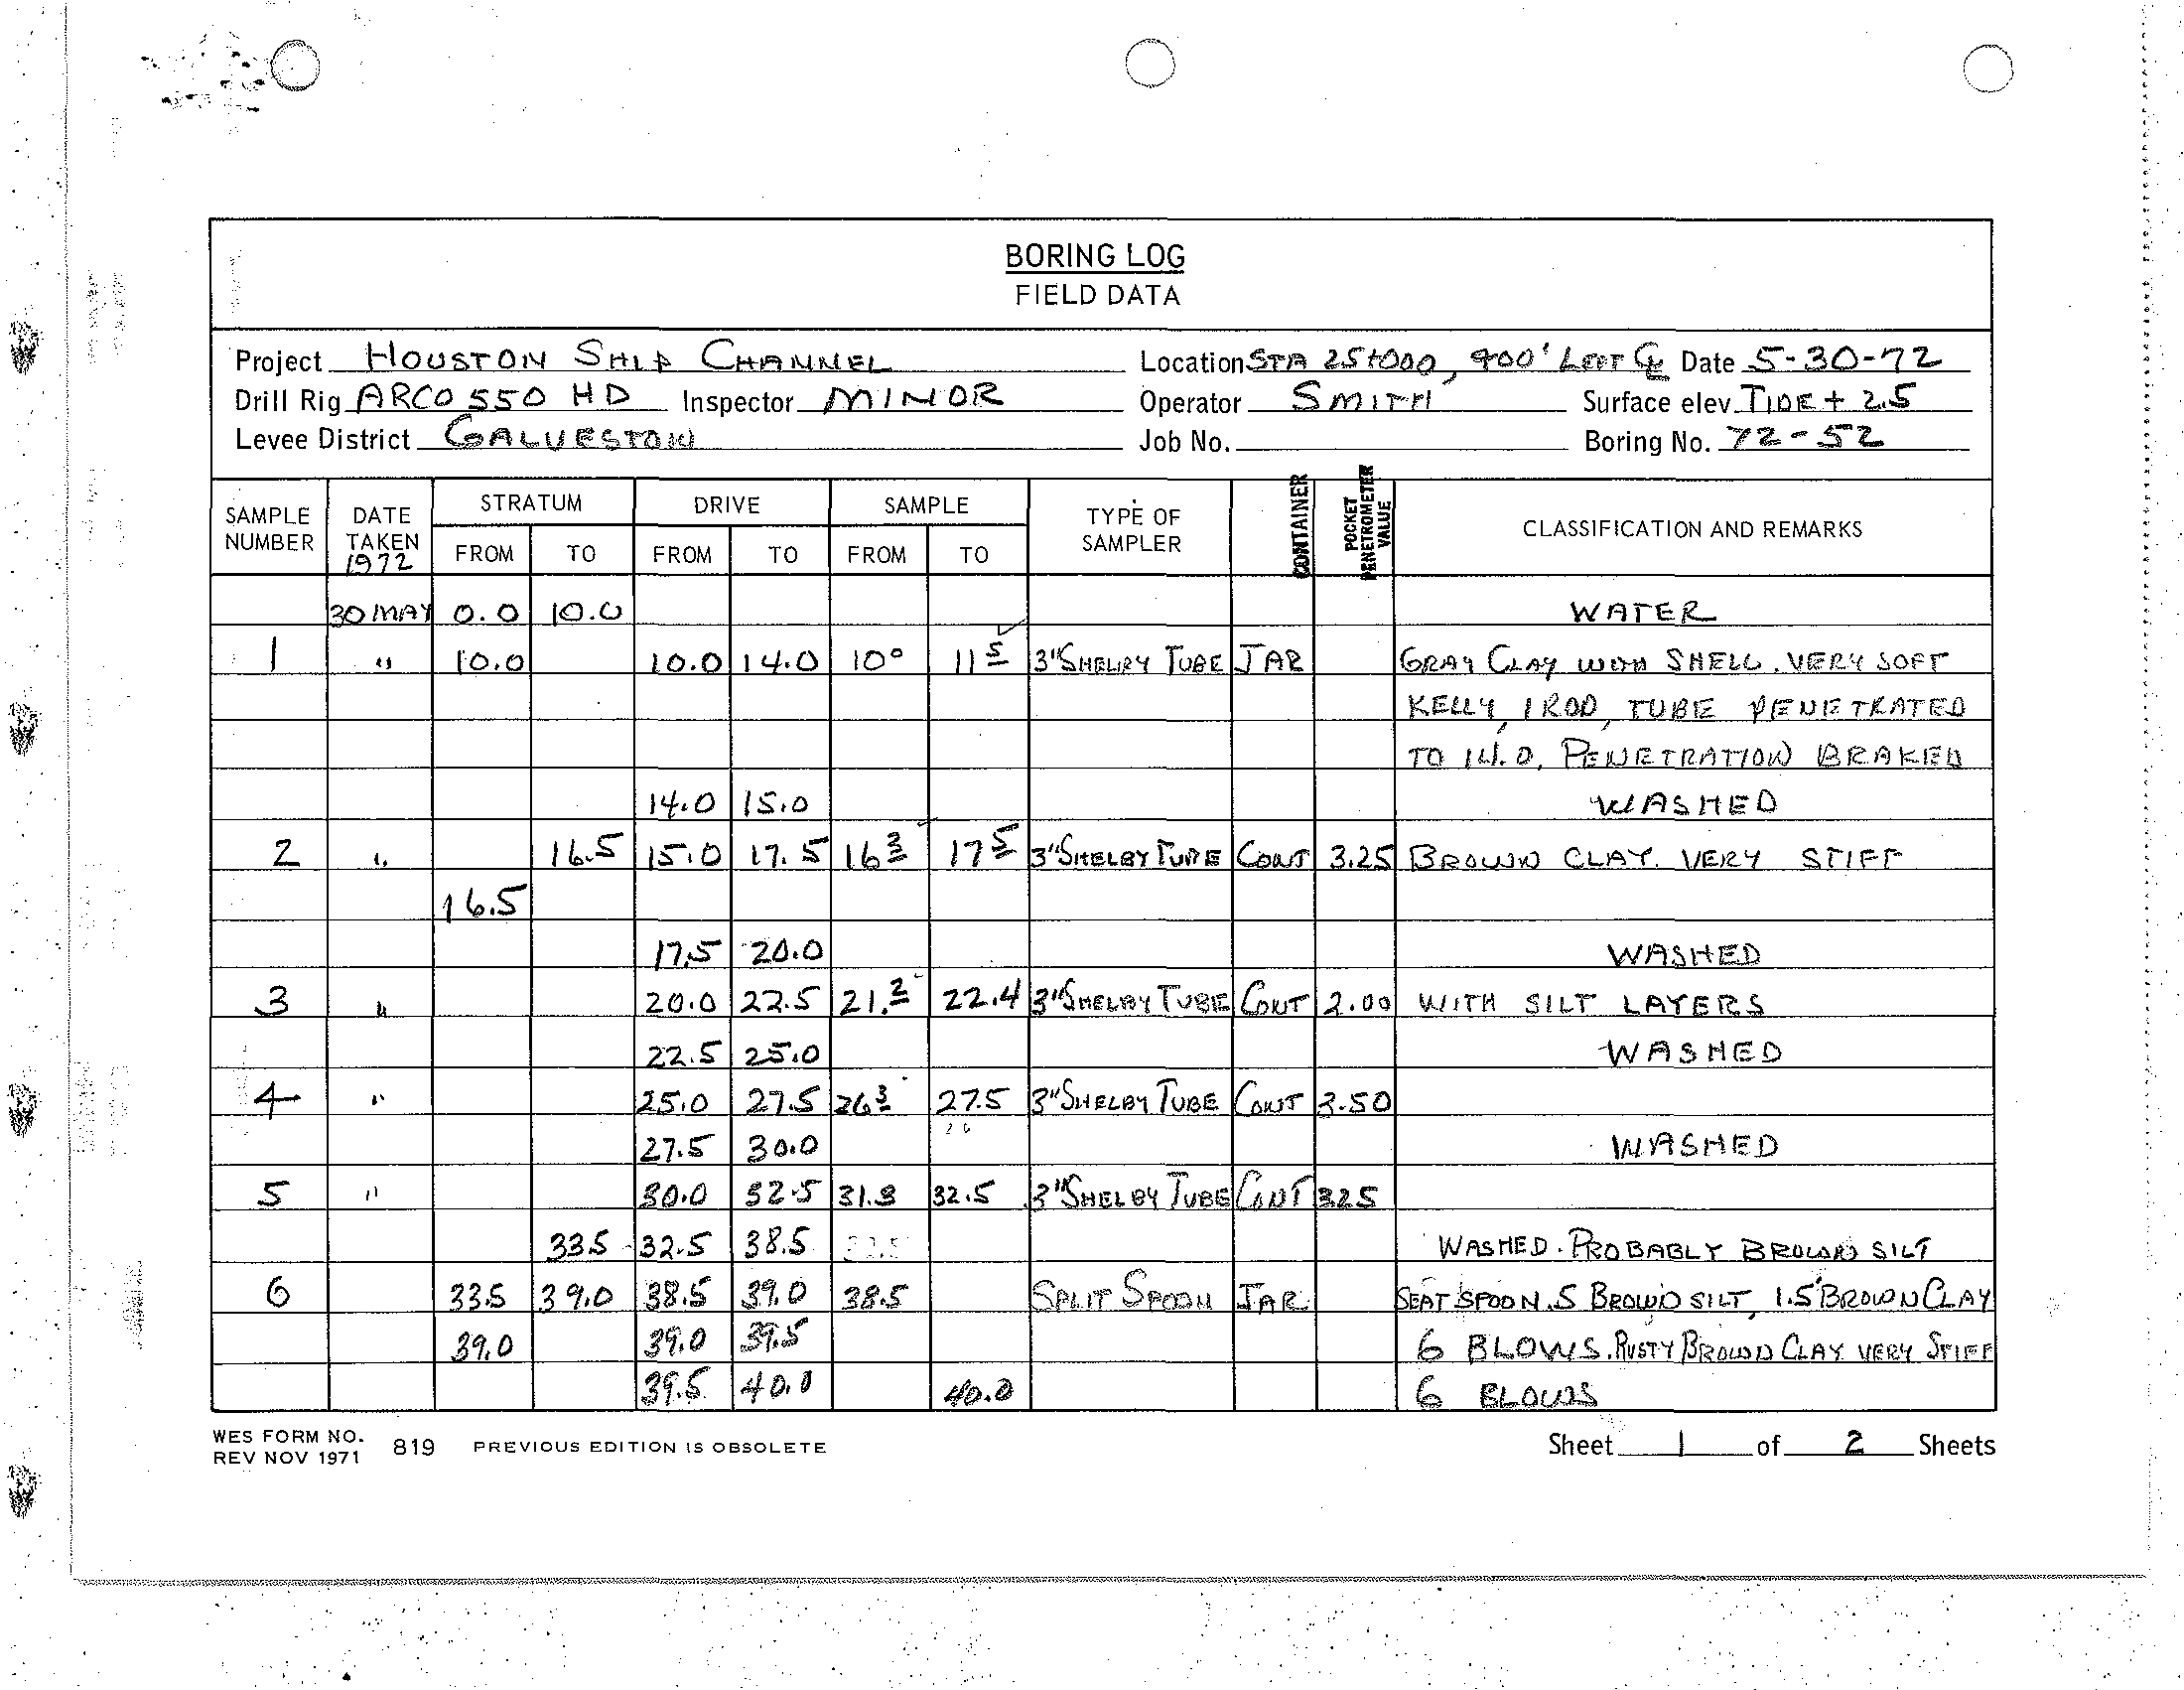 BORING LOG
FIELD DATA
Project HOUSTON SHIP CHANNEL Location STA 25+000, 900' LEFT ℄ Date 5-30-72
Drill Rig ARCO 550 HD Inspector MINOR Operator SMITH Surface elev. TIDE + 2.5
Levee District GALVESTON Job No. Boring No. 72-52
SAMPLE NUMBER DATE TAKEN 1972 STRATUM FROM TO DRIVE FROM TO SAMPLE FROM TO TYPE OF SAMPLER CONTAINER POCKET PENETROMETER VALUE CLASSIFICATION AND REMARKS
30 MAY 0.0 10.0 WATER
1 " 10.0 10.0 14.0 10⁰ 11⁵ 3" SHELBY TUBE JAR GRAY CLAY WITH SHELL. VERY SOFT
KELLY, 1 ROD, TUBE PENETRATED
TO 14.0. PENETRATION BRAKED
14.0 15.0 WASHED
2 " 16.5 15.0 17.5 16³ 17⁵ 3" SHELBY TUBE CONT 3.25 BROWN CLAY. VERY STIFF
16.5
17.5 20.0 WASHED
3 " 20.0 22.5 21.² 22.4 3" SHELBY TUBE CONT 2.00 WITH SILT LAYERS
22.5 25.0 WASHED
4 " 25.0 27.5 26³ 27.5 3" SHELBY TUBE CONT 3.50
27.5 30.0 WASHED
5 " 30.0 32.5 31.3 32.5 3" SHELBY TUBE CONT 325
33.5 32.5 38.5 WASHED. PROBABLY BROWN SILT
6 33.5 39.0 38.5 39.0 38.5 SPLIT SPOON JAR SEAT SPOON .5 BROWN SILT, 1.5' BROWN CLAY
39.0 39.0 39.5 6 BLOWS. RUSTY BROWN CLAY VERY STIFF
39.5 40.0 40.0 6 BLOWS
WES FORM NO. 819 PREVIOUS EDITION IS OBSOLETE Sheet 1 of 2 Sheets
REV NOV 1971